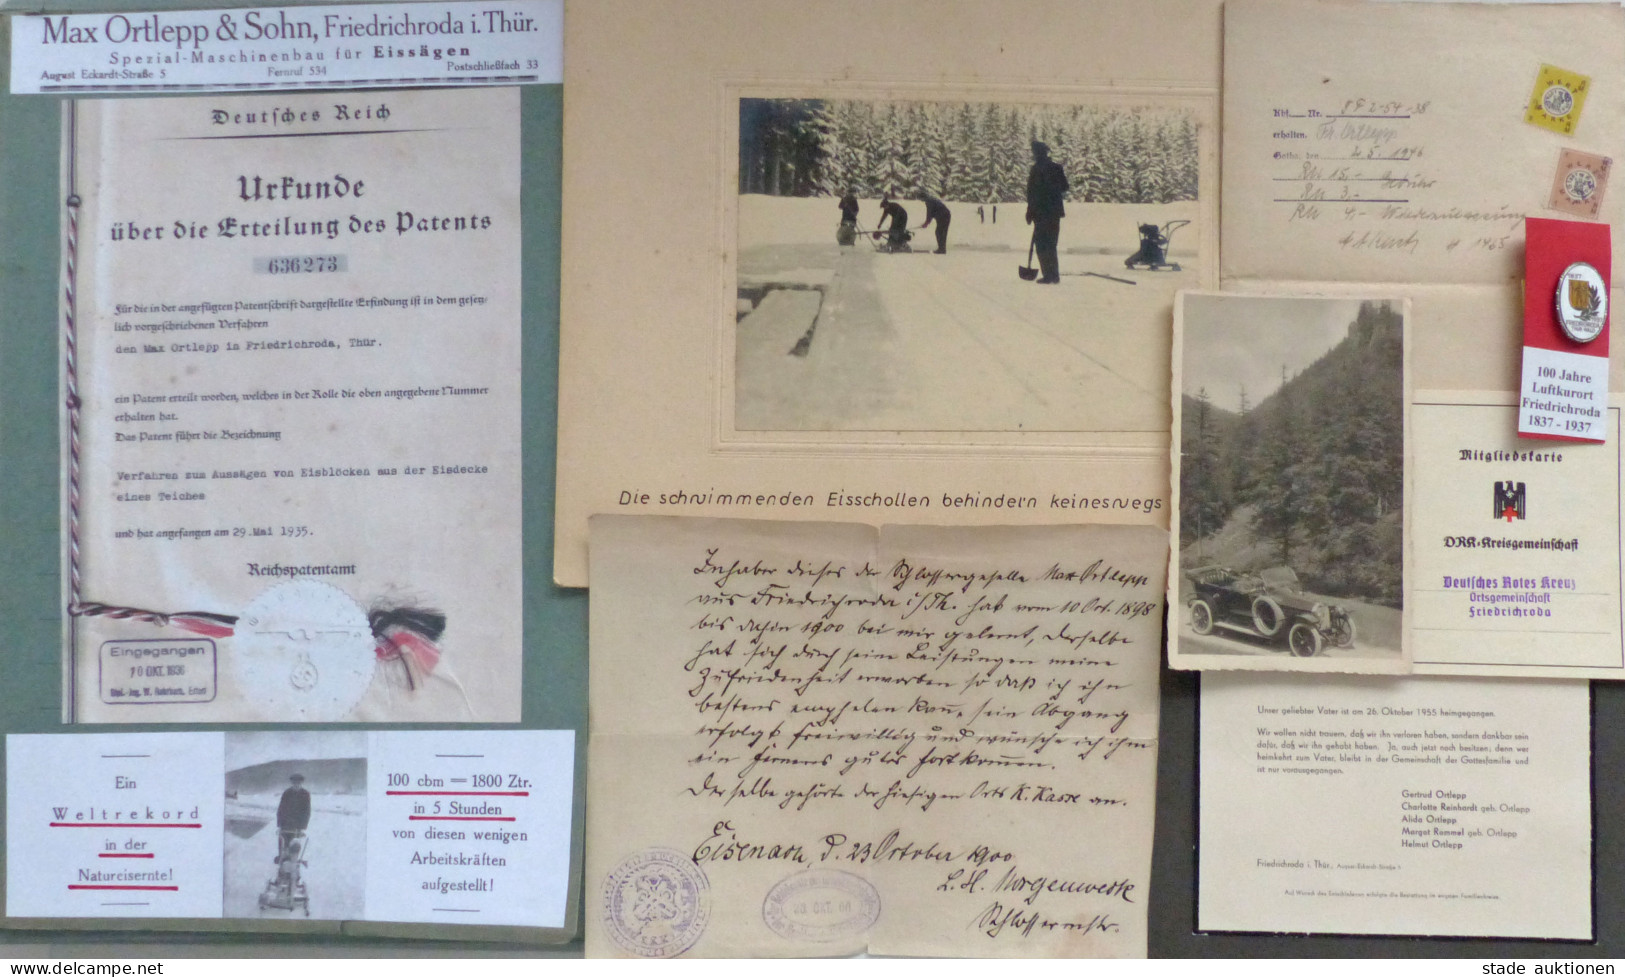 Max Ortlepp & Sohn, Friedrichroda i. Thür.
Spezial-Maschinenbau für Eissägen
August Eckardt-Straße 5 Fernruf 534 Postschließfach 33
Deutsches Reich
Urkunde
über die Erteilung des Patents
636273
Für die in der angefügten Patentschrift dargestellte Erfindung ist in dem gesetz-
lich vorgeschriebenen Verfahren
dem Max Ortlepp in Friedrichroda, Thür.
ein Patent erteilt worden, welches in der Rolle die oben angegebene Nummer
erhalten hat.
Das Patent führt die Bezeichnung
Verfahren zum Aussägen von Eisblöcken aus der Eisdecke
eines Teiches
und hat angefangen am 29. Mai 1935.
Reichspatentamt
Eingegangen
10 OKT. 1936
Dipl.-Ing. W. Erfurt
Ein
Weltrekord
in der
Natureisernte!
100 cbm = 1800 Ztr.
in 5 Stunden
von diesen wenigen
Arbeitskräften
aufgestellt!
Die schwimmenden Eisschollen behindern keineswegs
Inhaber dieses der Schlossergeselle Max Ortlepp
aus Friedrichroda i/Th. hat vom 10 Oct. 1898
bis dahin 1900 bei mir gelernt, derselbe
hat sich durch seine Leistungen meine
Zufriedenheit erworben so daß ich ihn
bestens empfehlen kann, sein Abgang
erfolgt freiwillig und wünsche ich ihm
ein ferneres gutes fortkommen.
Derselbe gehörte der hiesigen Orts K. Kasse an.
Eisenach, d. 23 October 1900
L. H. Morgenweck
Schlossermstr.
Nr. 8F2-54-38
erhalten. Fr. Ortlepp
Gotha, den 2.5. 1946
RM 15,-
RM 3,-
RM 4,-
1837
FRIEDRICHRODA
100 Jahre
Luftkurort
Friedrichroda
1837 - 1937
Mitgliedskarte
DRK-Kreisgemeinschaft
Deutsches Rotes Kreuz
Ortsgemeinschaft
Friedrichroda
Unser geliebter Vater ist am 26. Oktober 1955 heimgegangen.
Wir wollen nicht trauern, daß wir ihn verloren haben, sondern dankbar sein
dafür, daß wir ihn gehabt haben. Ja, auch jetzt noch besitzen; denn wer
heimkehrt zum Vater, bleibt in der Gemeinschaft der Gottesfamilie und
ist nur vorausgegangen.
Gertrud Ortlepp
Charlotte Reinhardt geb. Ortlepp
Alida Ortlepp
Margot Rommel geb. Ortlepp
Helmut Ortlepp
Friedrichroda i. Thür., August-Eckardt-Straße 5
Auf Wunsch des Entschlafenen erfolgte die Bestattung im engsten Familienkreise.
stade auktionen
© www.delcampe.net